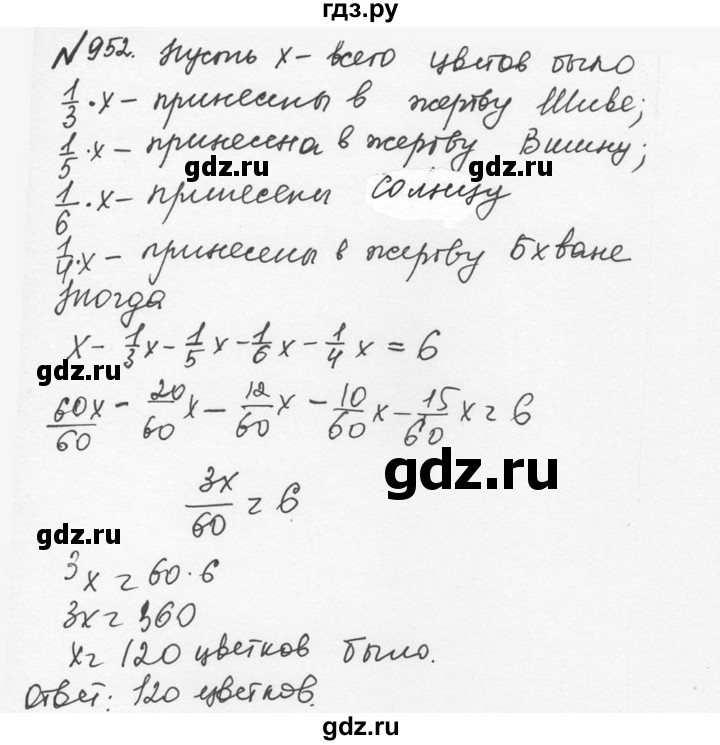 гдз.ру
№952. Пусть x – всего цветов было
1/3 · x – принесены в жертву Шиве;
1/5 · x – принесена в жертву Вишну;
gdz.ru
gdz.ru
1/6 · x – принесены Солнцу
1/4 · x – принесены в жертву Бхване
Тогда
x – 1/3 x – 1/5 x – 1/6 x – 1/4 x = 6
gdz.ru
60x/60 – 20/60 x – 12/60 x – 10/60 x – 15/60 x = 6
gdz.ru
3x/60 = 6
gdz.ru
gdz.ru
3x = 60 · 6
3x = 360
x = 120 цветков было.
Ответ: 120 цветков.
gdz.ru